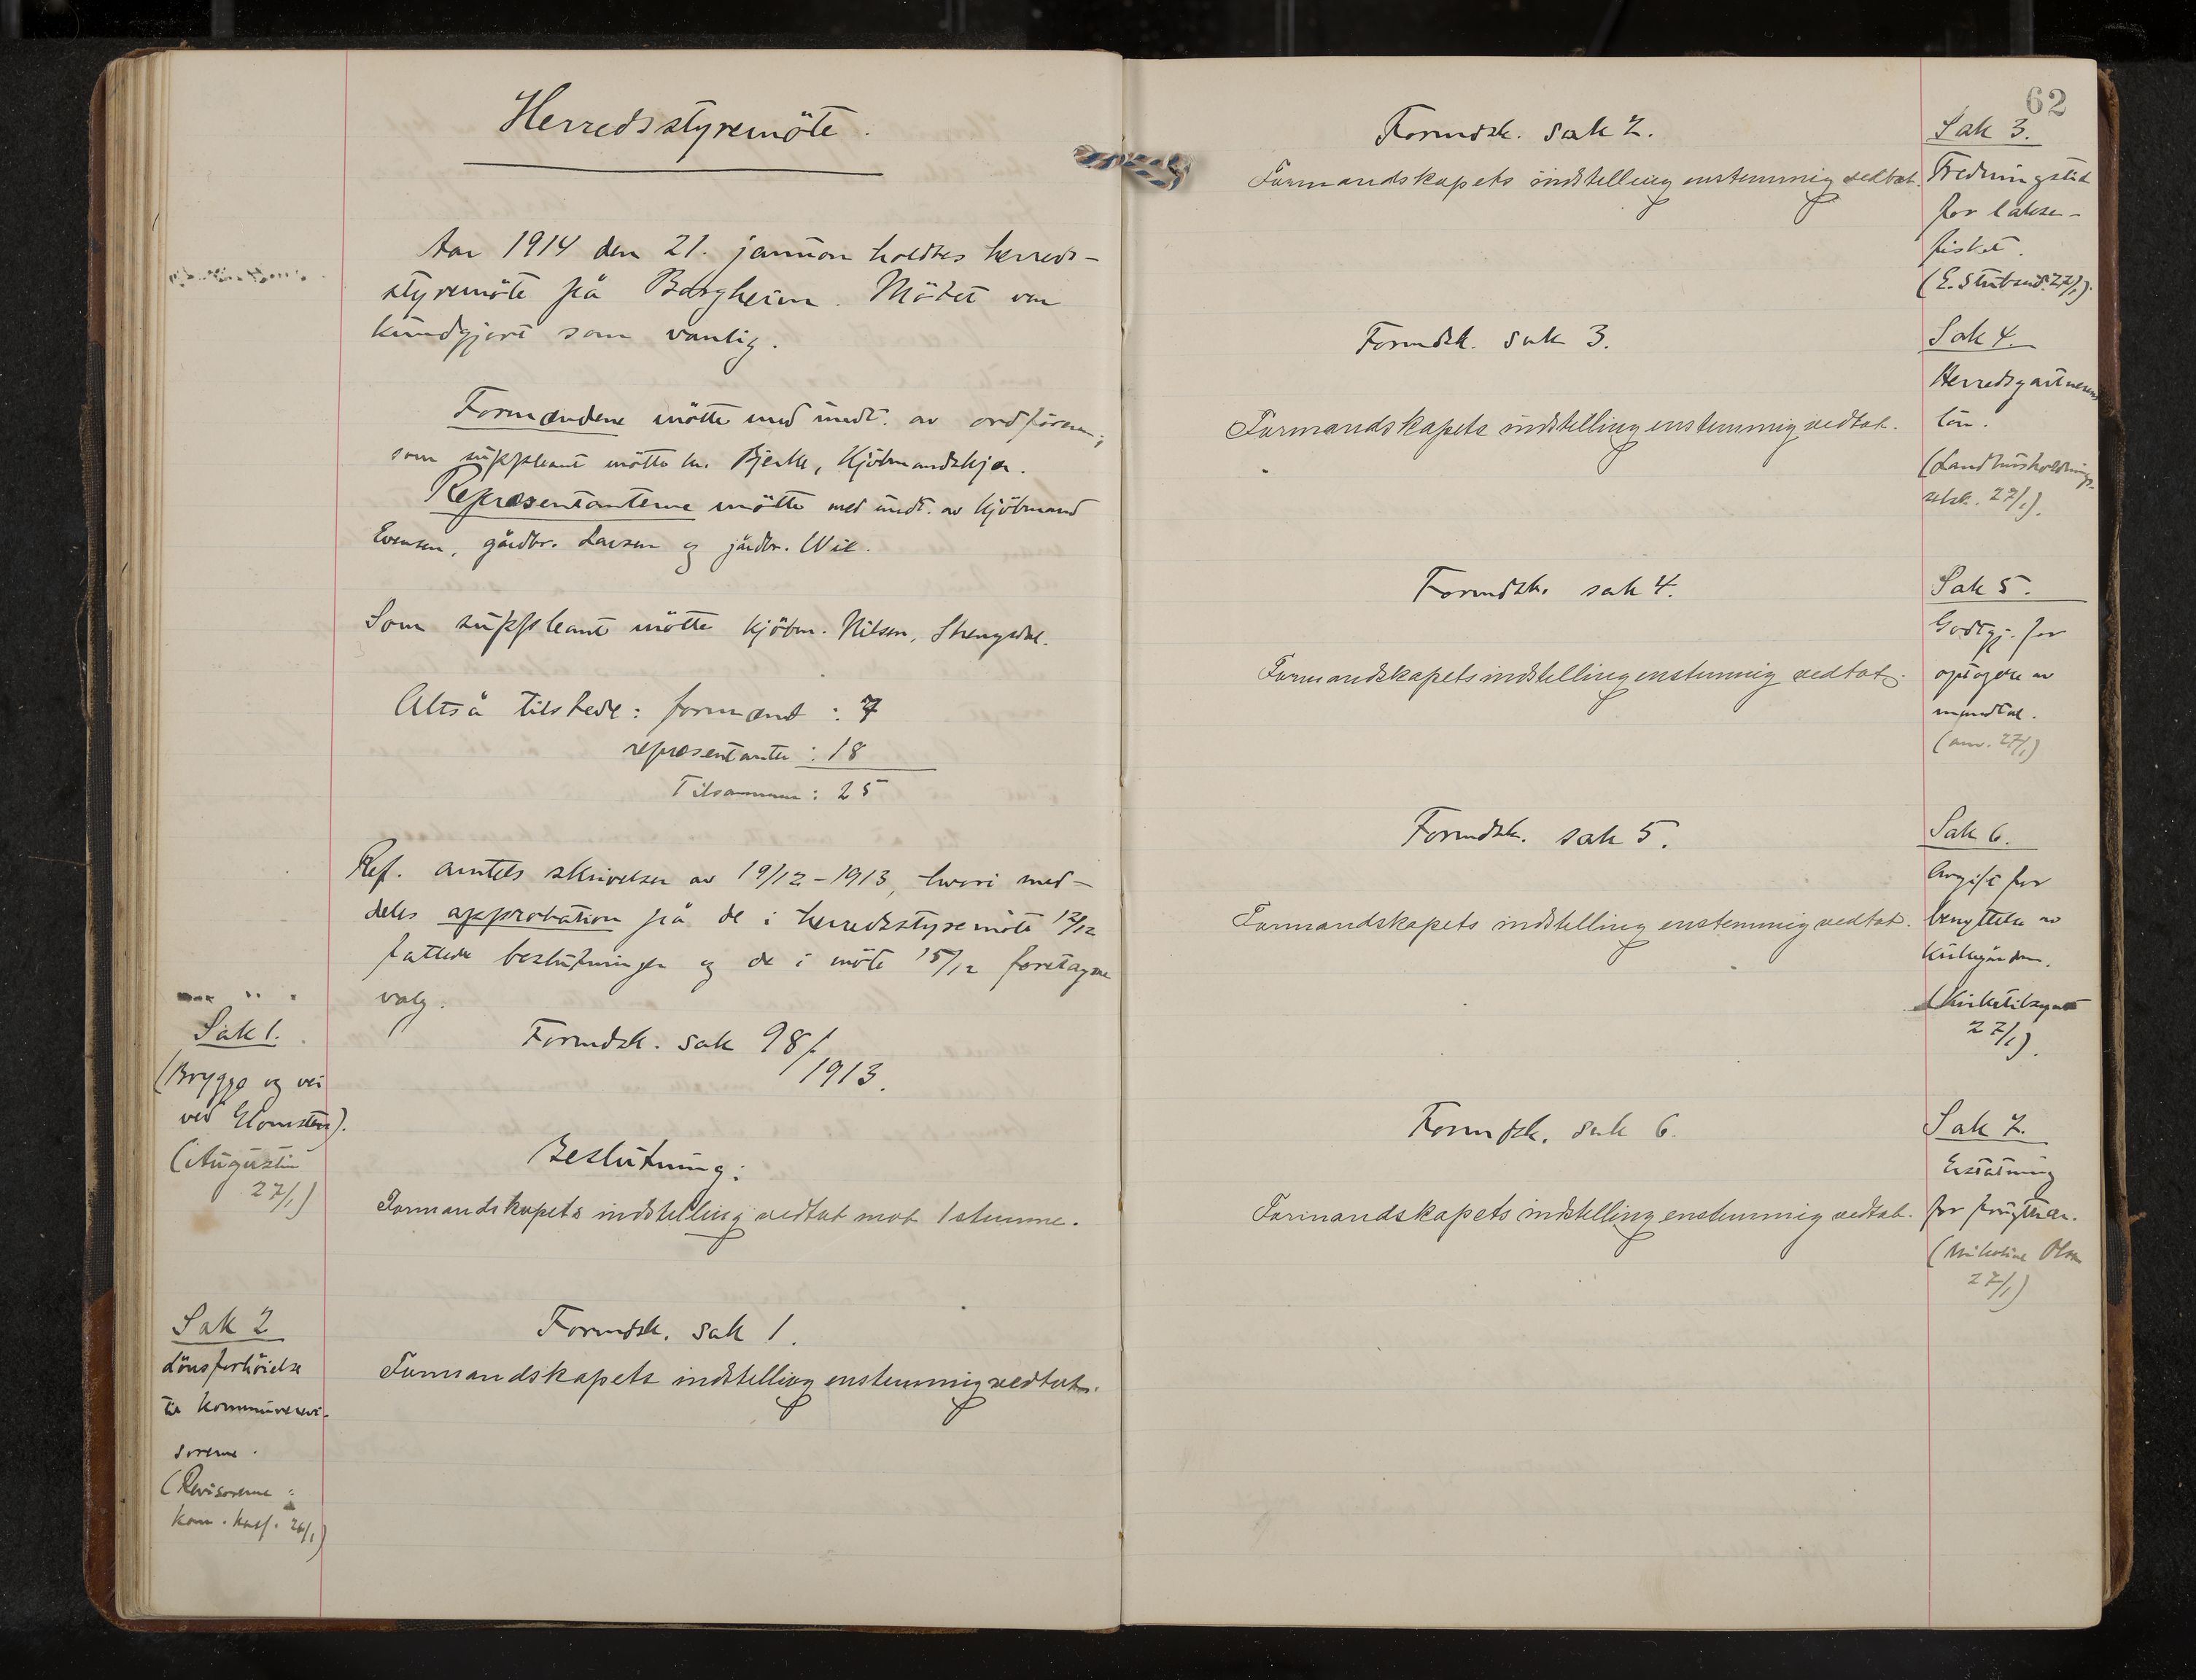 Herredsstyremöte.
Aar 1914 den 21. januar holdtes herreds-
styremöte på Borgheim. Mötet var
kundgjort som vanlig.
Formændene mötte med undt. av ordföreren,
som suppleant mötte hr. Bjerke, Kjöbmandskjær.
Repræsentanterne mötte med undt. av Kjöbmand
Evensen, gårdbr. Larsen og gårdbr. Wiik.
Som suppleant mötte kjöbm. Nilsen, Strengsdal.
Altså tilstede: formænd : 7
repræsentanter : 18
Tilsammen : 25
Ref. amtets skrivelser av 19/12 - 1913, hvori med-
deles approbation på de i herredsstyremöte 12/12
fattede beslutninger og de i möte 15/12 foretagne
valg.
Sak 1.
(Brygge og vei
ved Glomstein).
(Augustin
27/1)
Formdsk. sak 98/1913.
Beslutning:
Formandskapets indstilling vedtat mot 1 stemme.
Sak 2
Lönsforhöielse
til kommunerevi-
sorerne.
(Revisorerne :
kom. kass. 26/1)
Formdsk. sak 1.
Formandskapets indstilling enstemmig vedtat.
62
Formdsk. sak 2.
Formandskapets indstilling enstemmig vedtat.
Sak 3.
Fredningstid
for lakse-
fisket.
(E. Stubsrud 27/1).
Formdsk. sak 3.
Formandskapets indstilling enstemmig vedtat.
Sak 4.
Herredsgartnerens
lön.
(Landhusholdnings-
selsk. 27/1).
Formdsk. sak 4.
Formandskapets indstilling enstemmig vedtat.
Sak 5.
Godtgj. for
optagelse av
mandtal.
(anv. 27/1)
Formdsk. sak 5.
Formandskapets indstilling enstemmig vedtat.
Sak 6.
Avgift for
benyttelse av
kirkegården.
(Kirketilsynet
27/1).
Formdsk. sak 6.
Formandskapets indstilling enstemmig vedtat.
Sak 7.
Erstatning
for frugttrær.
(Nikoline Olsen
27/1)